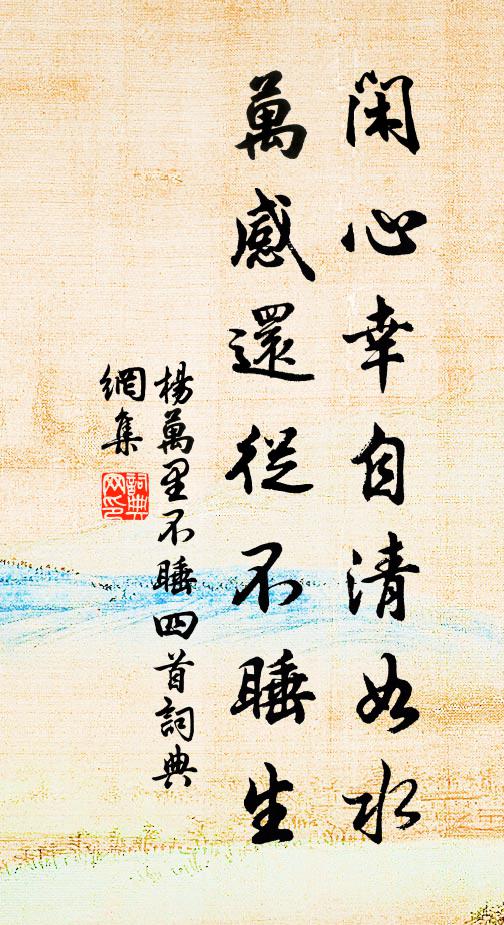 閑心幸自清如水
萬感還從不睡生
楊萬里不睡四首詞典
網集
詞典
网印